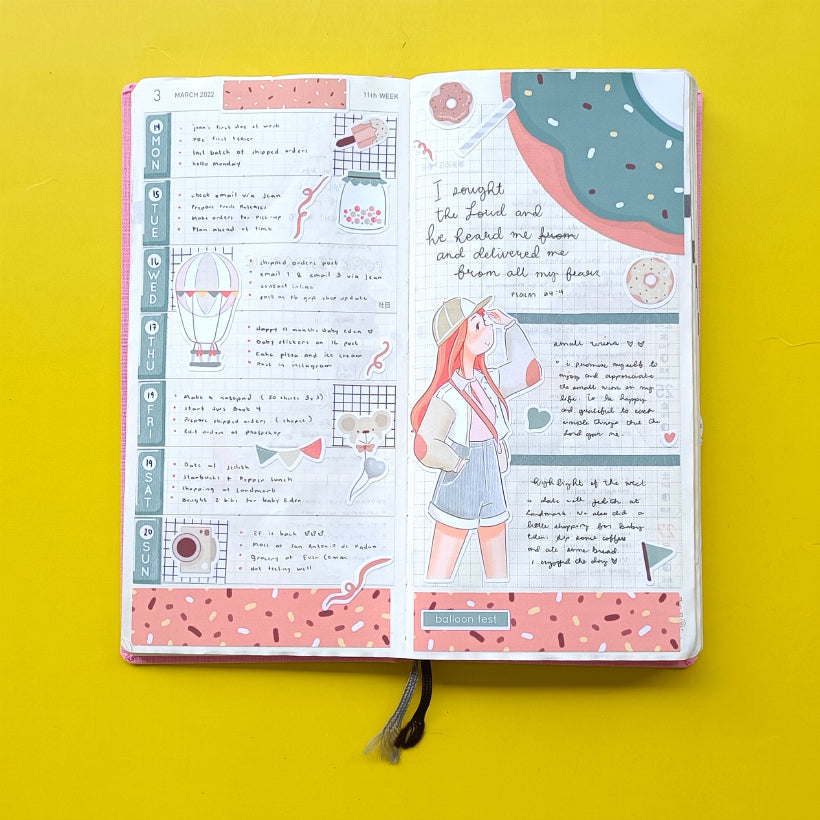 3 MARCH 2022 11th WEEK
14 MON
jean's first day of work
first
last batch of shipped orders
hello Monday
15 TUE
check email via Jean
Prepare Fresh Releases
Make orders for pick-up
Plan ahead of time
16 WED
shipped orders post
email 1 & email 3 via Jean
contact
post on fb grp shop update
社日
17 THU
Happy 11 months Baby Eden
Baby stickers on IG post
Cake pizza and ice cream
Post in Instagram
18 FRI
Make a notepad (50 sheets 3x3)
Start Book 4
Prepare shipped orders (shopee)
Edit orders at Photoshop
19 SAT
Date w/
Starbucks & Pepper Lunch
Shopping at Landmark
Bought 2 bibs for baby Eden
20 SUN
is back
Mass at San Antonio de Padua
Grocery at
Not feeling well
I sought
the Lord and
he heard me from
and delivered me
from all my fears
Psalm 34:4
small wins
" i promise myself to
enjoy and appreciate
the small wins in my
life. to be happy
and grateful to every
simple things that the
Lord gave me.
highlight of the week
a date with at
Landmark. We also did a
little shopping for baby
Eden. Sip some coffee
and ate some bread.
I enjoyed the day
balloon fest